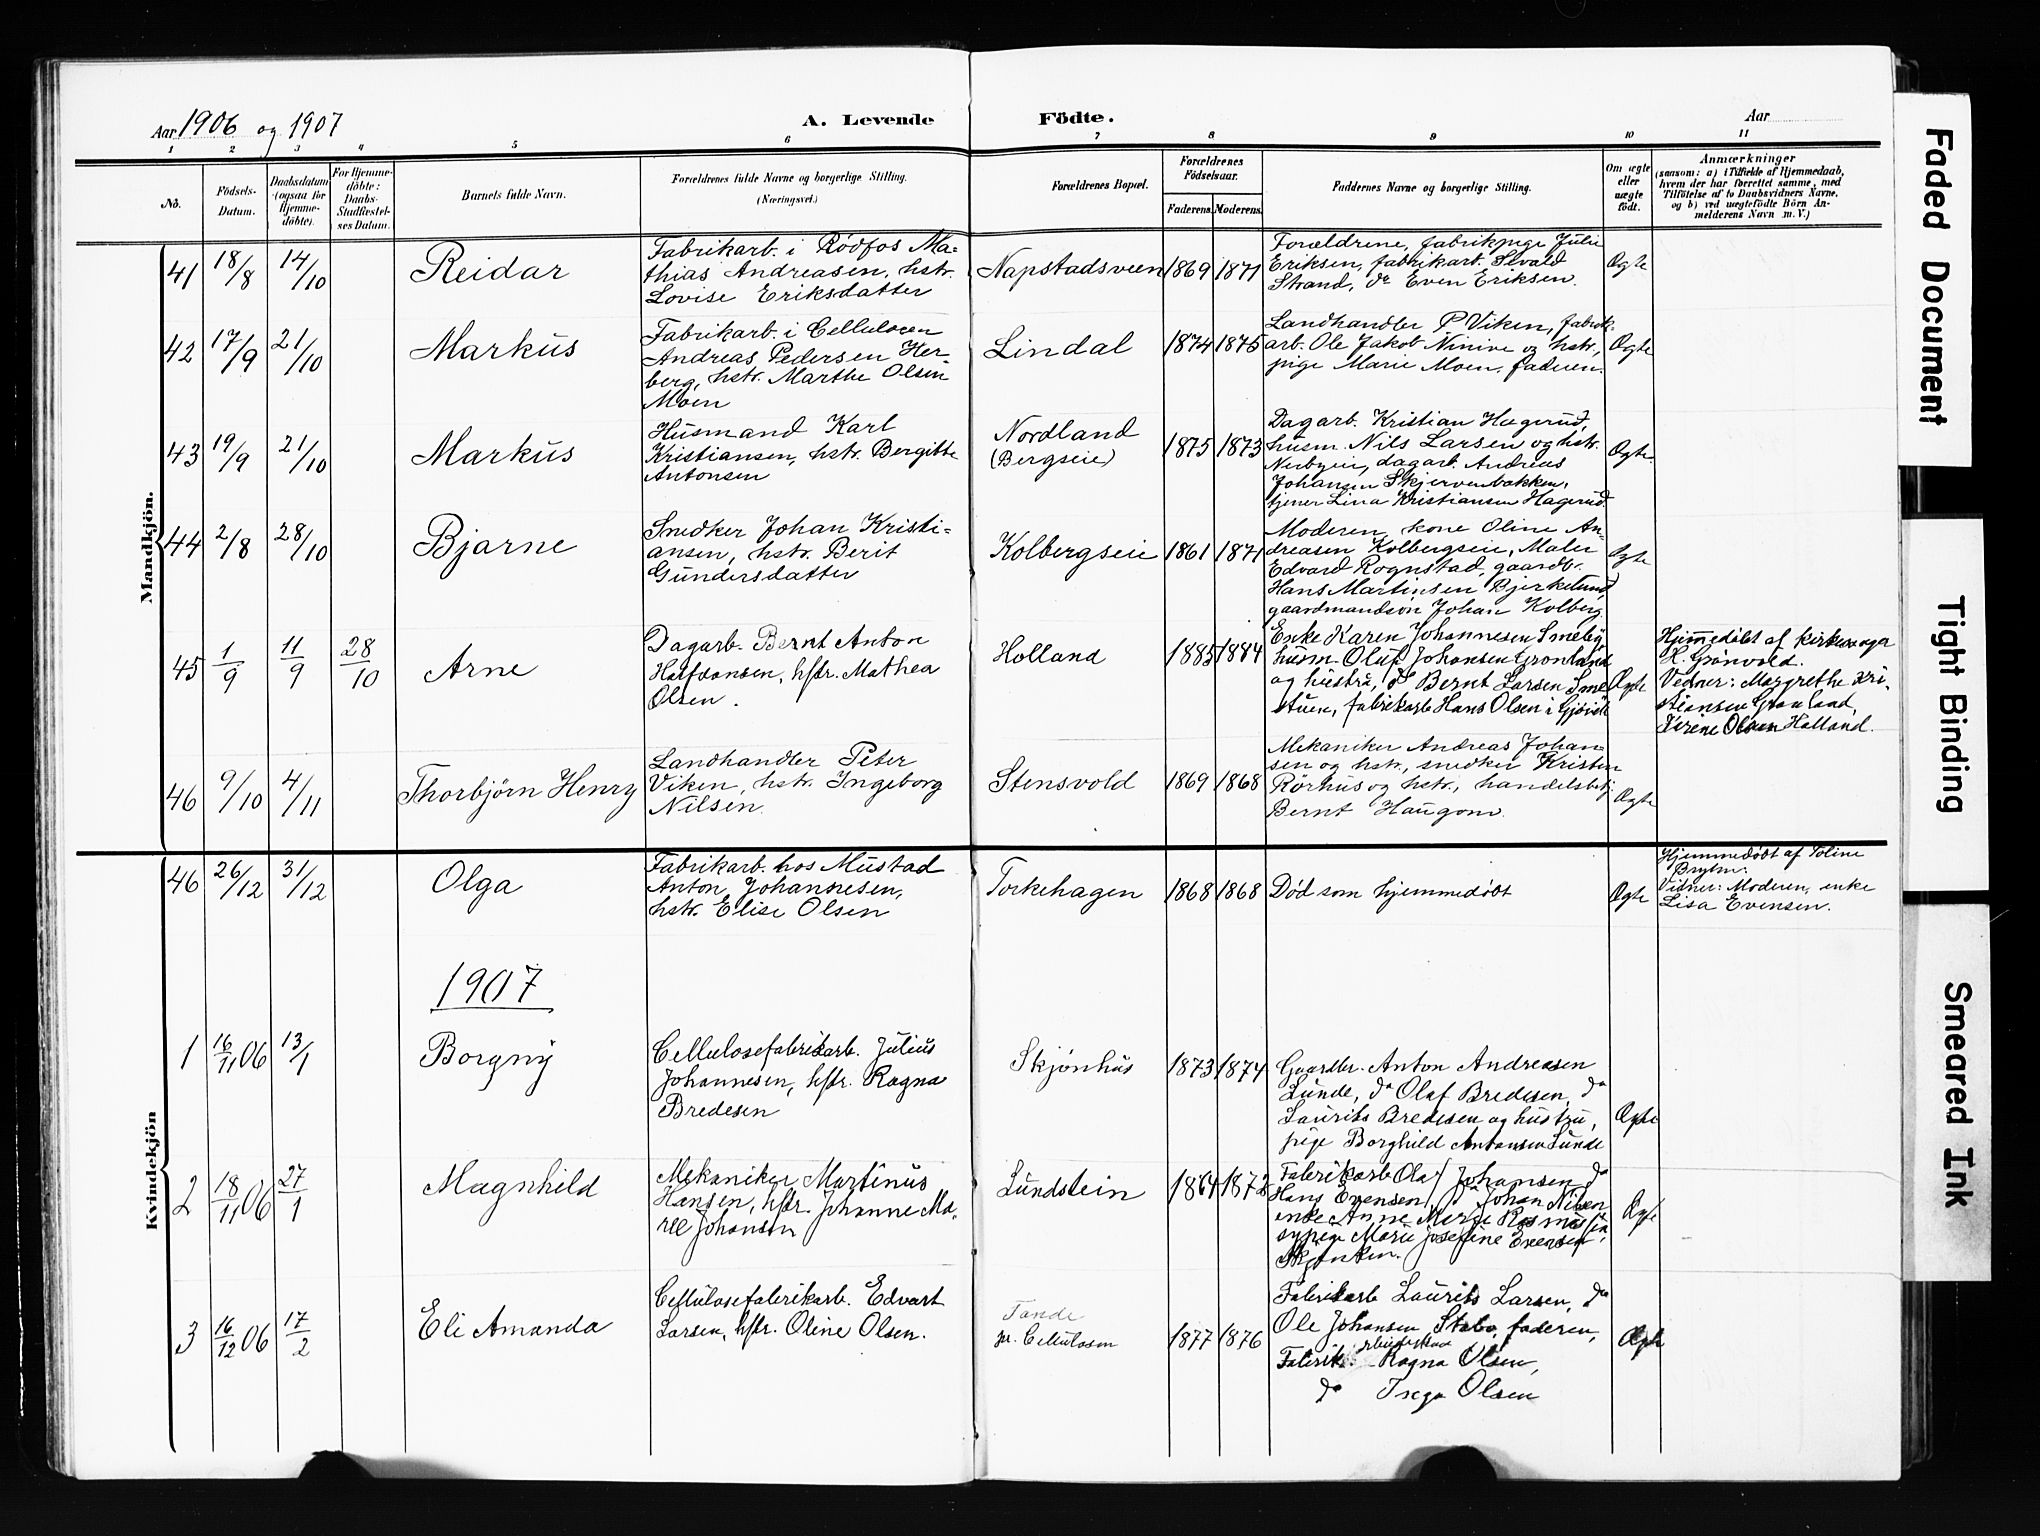 Aar 1906 og 1907
A. Levende Födte.
Aar
1 2 3 4 5 6 7 8 9 10 11
No.
Födsels-Datum.
Daabsdatum (ogsaa for Hjemme-döbte).
For Hjemme-döbte: Daabs-Stadfæstel-ses Datum.
Barnets fulde Navn.
Forældrenes fulde Navne og borgerlige Stilling. (Næringsvei.)
Forældrenes Bopæl.
Forældrenes Födselsaar.
Faderens. Moderens.
Faddernes Navne og borgerlige Stilling.
Om ægte eller uægte födt.
Anmærkninger
(saasom: a) i Tilfælde af Hjemmedaab,
hvem der har forrettet samme, med
Tilföielse af to Daabsvidners Navne,
og b) ved uægtefödte Börn An-
melderens Navn m. V.)
Mandkjön.
41 18/8 14/10 Reidar
Fabrikarb. i Rødfos Ma=
thias Andreasen, hstr.
Lovise Eriksdatter
Napstadsveen 1869 1871
Forældrene, fabrikpige Julie
Eriksen, fabrikarb. Sevald
Strand, do Even Eriksen.
Ægte
42 17/9 21/10 Markus
Fabrikarb. i Cellulosen
Andreas Pedersen Her-
berg, hstr. Marthe Olsen
Moen
Lindal 1874 1875
Landhandler P Viken, fabrik-
arb. Ole Jakob Ninive og hstr.,
pige Marie Moen, faderen.
Ægte
43 19/9 21/10 Markus
Husmand Karl
Kristiansen, hstr. Bergitte
Antonsen
Nordland
(Bergseie)
1875 1873
Dagarb. Kristian Hagerud,
husm. Nils Larsen og hstr.
Nerbyeie, dagarb. Andreas
Johansen Skjervenbakken,
tjener Lina Kristiansen Hagerud.
Ægte.
44 2/8 28/10 Bjarne
Snedker Johan Kristi=
ansen, hstr. Berit
Gundersdatter
Kolbergseie 1861 1871
Moderen, kone Oline An-
dreasen Kolbergseie, Maler
Edvard Rognstad, gaardbr.
Hans Martinsen Bjerkelund,
gaardmandsøn Johan Kolberg
Ægte
45 1/9 11/9 28/10 Arne
Dagarb. Bernt Anton
Halfdansen, hstr. Mathea
Olsen.
Holland 1885 1884
Enke Karen Johannesen Smeby
husm. Oluf Johansen Grønland
og hustru, do Bernt Larsen Sme
stuen, fabrikarb Hans Olsen i Gjøvik
Ægte
Hjemmedøbt af kirkesanger
H. Grønvold.
Vedner: Margrethe Kri-
stiansen Grønland,
Verene Olsen Holland.
46 9/10 4/11 Thorbjørn Henry
Landhandler Peter
Viken, hstr. Ingeborg
Nilsen.
Stensvold 1869 1868
Mekaniker Andreas Johan=
sen og hstr., snedker Kristen
Rørhus og hstr., handelsbetj.
Bernt Haugom.
Ægte
Kvindekjön
46 26/12 31/12 Olga
Fabrikarb. hos Mustad
Anton Johannesen,
hstr. Elise Olsen
Torkehagen 1868 1868
Død som hjemmedøbt
Ægte
Hjemmedøbt af Toline
Vidner: Moderen, enke
Lisa Evensen.
1907
1 16/11 06 13/1 Borgny
Cellulosefabrikarb. Julius
Johannesen, hstr. Ragna
Bredesen
Skjønhus 1873 1874
Gaardbr. Anton Andreasen
Lunde, do Olaf Bredesen, do
Laurits Bredesen og hustru,
pige Borghild Antonsen Lunde
Ægte
2 18/11 06 27/1 Magnhild
Mekaniker Martinus
Hansen, hstr. Johanne Ma-
rie Johansen
Lundstein 1864 1872
Fabrikarb Olaf Johansen do
Hans Evensen, do Johan Nilsen
enke Anne Marie Rasmussen,
sypige Marie Josefine Evensen
Ægte
3 16/12 06 17/2 Eli Amanda
Cellulosefabrikarb. Edvart
Larsen, hstr. Oline Olsen.
Tande
pr. Cellulosen
1877 1876
Fabrikarb Laurits Larsen, do
Ole Johansen Stabo, faderen,
Fabrik- arbeiderske Ragna Olsen,
do Inga Olsen
Ægte
Faded Document
Tight Binding
Smeared Ink